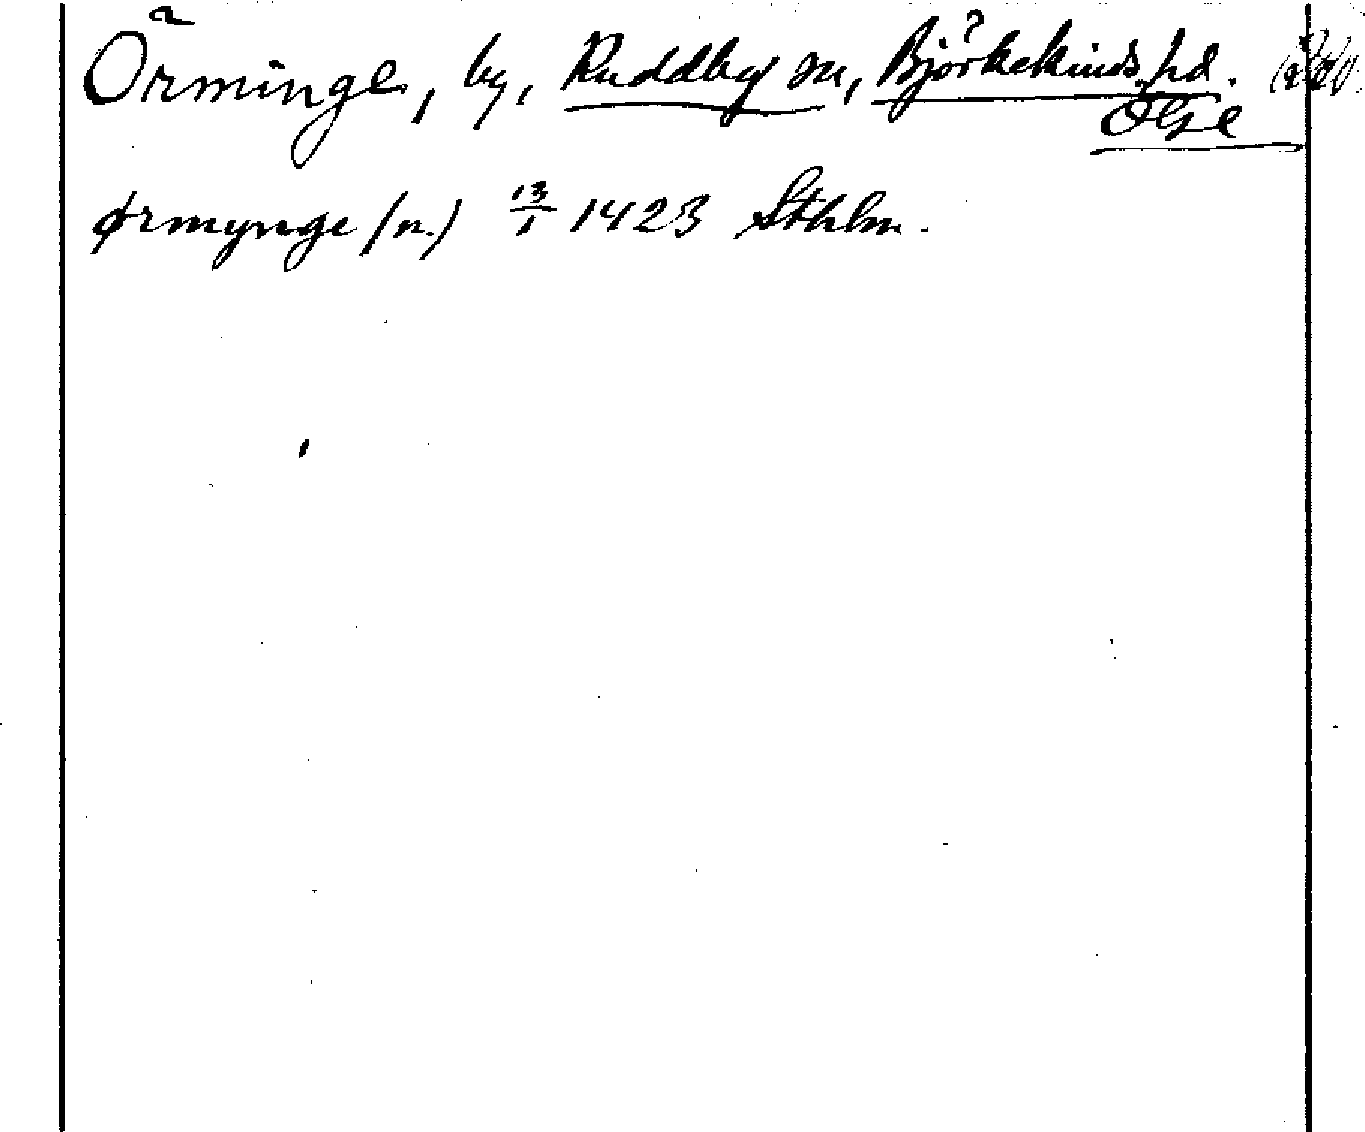 Örminge, by, Kuddby sn, Björkekinds hd.
ÖGE
ørmynge (n.) 13/1 1423 Sthlm.